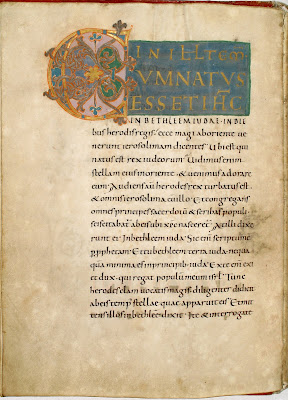 IN ILL TEM
CUM NATUS
ESSET IHC
IN BETHLEEM IUDAE IN DIE
bus herodis regis. ecce magi ab oriente ue
nerunt ierosolimam dicentes. Ubi est qui
natus est rex iudeorum. Uidimus enim
stellam eius in oriente. & uenimus adorare
eum. Audiens aut herodes rex turbatus est.
& omnis ierosolima cu illo. Et congregans
omnes principes sacerdotu & scribas populi.
sciscitabat ab eis ubi xpc nascer&. At illi dixe
runt ei. In bethleem iudae. Sic eni scriptu e
p pphetam. Et tu bethleem terra iuda. nequa
qua minima es in principib; iuda. Ex te eni exi
et dux. qui regat populu meum isrl. Tunc
herodes clam uocatis magis. diligenter didicit
ab eis temp stellae quae apparuit eis. Et mit
tens illos in bethleem dixit. Ite & interrogate